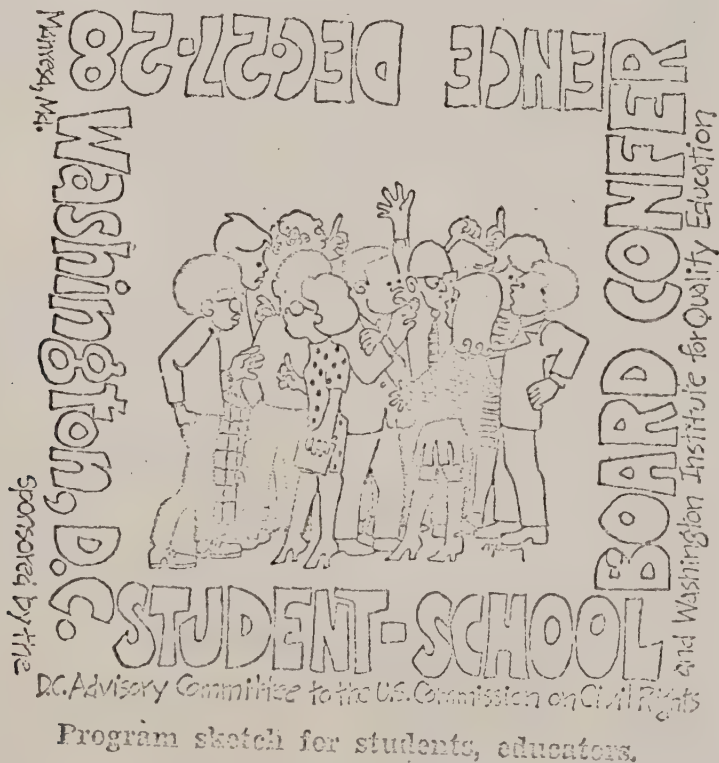 STUDENT-SCHOOL
BOARD CONFER
ENCE DEC. 27-28
Washington, D.C.
sponsored by the
D.C. Advisory Committee to the U.S. Commission on Civil Rights
and Washington Institute for Quality Education
Manresa, Md.
Program sketch for students, educators.